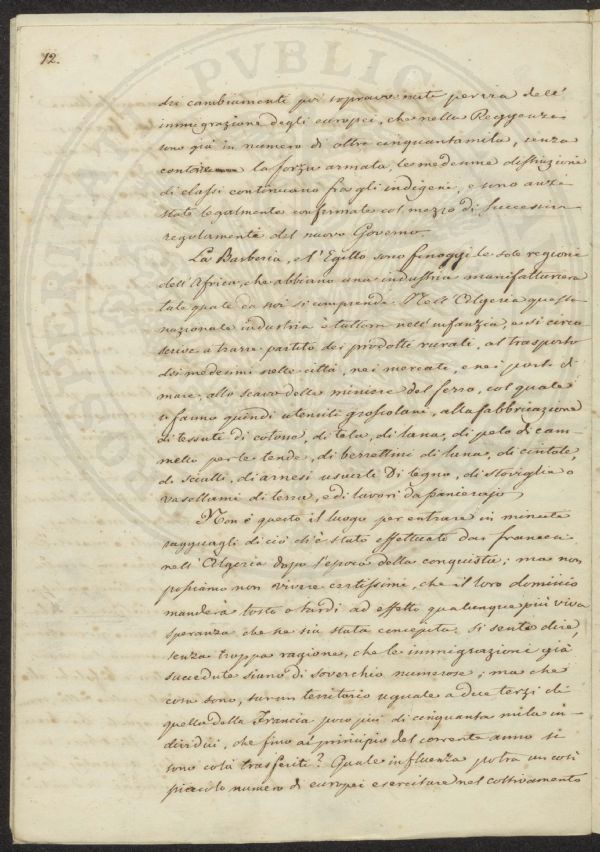 12.
dei cambiamenti poi sopravvenuti per via dell'
immigrazione degli europei, che nella Reggenza
sono già in numero di oltre cinquantamila, senza
la forza armata, le medesime distinzioni
di classi continuano fra gli indigeni, e sono anzi
state legalmente confirmate col mezzo di successivi
regolamenti del nuovo Governo.
La Barberia, e l'Egitto sono finoggi le sole regioni
dell'Affrica, che abbiano una industria manifatturiera
tale quale da noi si comprende. Nell'Algeria questa
nazionale industria è tuttora nell'infanzia, e si circo
scrive a trarre partito dei prodotti rurali, al trasporto
dei medesimi nelle città, nei mercati, e nei porti di
mare, allo scavo delle miniere del ferro, col quale
si fanno quindi utensili grossolani, alla fabbricazione
di tessuti di cotone, di tela, di lana, di pelo di cam-
melio per le tende, di berrettini di lana, di cintole,
di scialli, di arnesi usuali di legno, di stoviglia o
vasellami di terra, e di lavori da panierajo.
Non è questo il luogo per entrare in minuti
ragguagli di ciò ch'è stato effettuato dai francesi
nell'Algeria dopo l'epoca della conquista; ma non
possiamo non vivere certissimi, che il loro dominio
manderà tosto o tardi ad effetto qualunque più viva
speranza che ne sia stata concepita. Si sente dire,
senza troppa ragione, che le immigrazioni già
succedute siano di soverchio numerose; ma che
cosa sono, sur un territorio uguale a due terzi di
quello della Francia poco più di cinquanta mila in-
dividui, che fino al principio del corrente anno si
sono colà trasferiti? Quale influenza potrà un così
piccolo numero di europei esercitare nel coltivamento
PUBLIC
PROSPERITATI